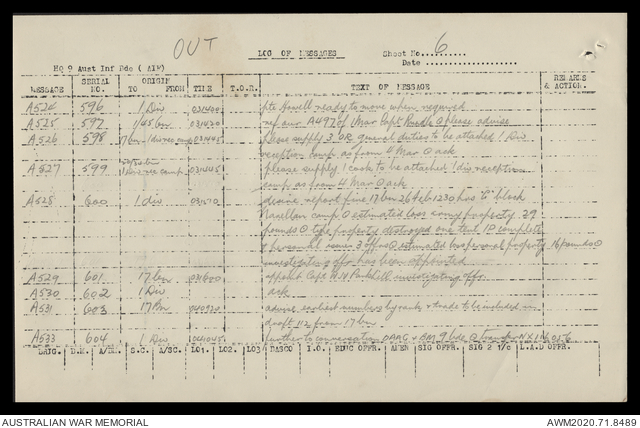 OUT
LOG OF MESSAGES
Sheet No. 6
HQ 9 Aust Inf Bde (AIF)
Date
MESSAGE SERIAL NO. ORIGIN TO FROM TIME T.O.R. TEXT OF MESSAGE REMARKS & ACTION.
A524 596 1 Div 031400 pte Howell ready to move when required
A525 597 1/45 bn 031430 ref our A497 of 1 Mar Capt O please advise
A526 598 031445 please supply 3 OR general duties to be attached 1 Div
reception camp as from 4 Mar O ack
A527 599 031445 please supply 1 cook to be attached 1 div reception
camp as from 4 Mar O ack
A528 600 1 div report fire 17 bn 26 Feb 1230 hrs C block
camp O estimated loss army property 27
pounds O type property destroyed one tent 1P complete
O personal 3 offrs O estimated loss personal property 16 pounds O
investigating offr has been appointed
A529 601 17 bn 031600 appoint Capt investigating offr.
A530 602 1 Div ack
A531 603 17 Bn 040920 advise earliest numbers by rank & trade to be included in
draft from 17 bn
A533 604 1 Div 041045 further to conversation DAAG & BM 9 bde O
BRIG. B.M. A/B.M. S.C. A/SC. LO1. LO2. LO3 BASCO I.O. EDUC OFFR. AMEN SIG OFFR. SIG 2 i/c L.A.D OFFR.
AUSTRALIAN WAR MEMORIAL
AWM2020.71.8489